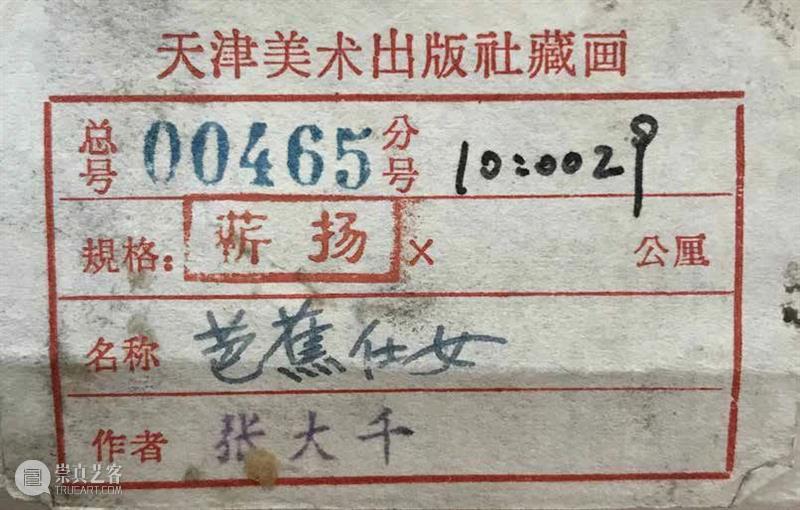 天津美术出版社藏画
总号 00465 分号 10:0029
規格: 薪扬 × 公厘
名称 芭蕉仕女
作者 张大千
崇真艺客
TRUEART.COM